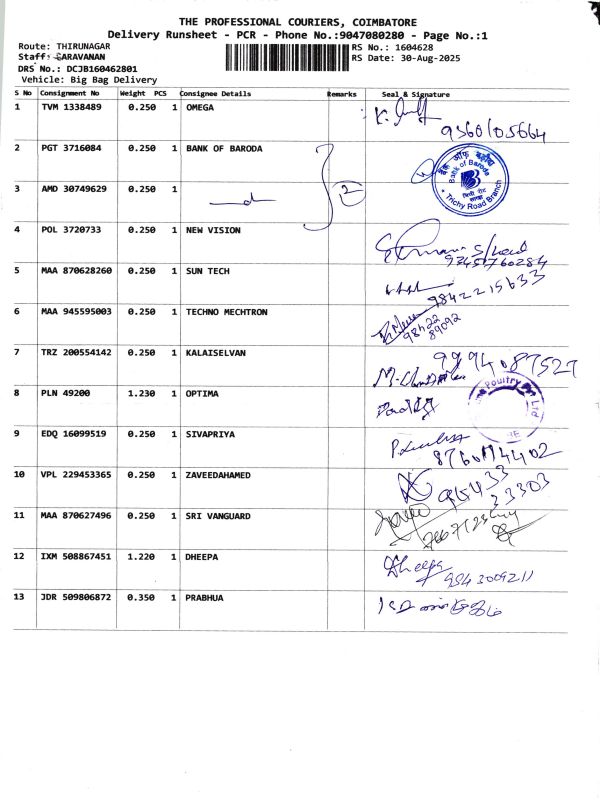 THE PROFESSIONAL COURIERS, COIMBATORE
Delivery Runsheet - PCR - Phone No.:9047080280 - Page No.:1
Route: THIRUNAGAR RS No.: 1604628
Staff: SARAVANAN RS Date: 30-Aug-2025
DRS No.: DCJB160462801
Vehicle: Big Bag Delivery
S No Consignment No Weight PCS Consignee Details Remarks Seal & Signature
1 TVM 1338489 0.250 1 OMEGA
9360105664
2 PGT 3716084 0.250 1 BANK OF BARODA
बैंक ऑफ़ बड़ौदा
Bank of Baroda
Trichy Road Branch
3 AMD 30749629 0.250 1
2
4 POL 3720733 0.250 1 NEW VISION
5 MAA 870628260 0.250 1 SUN TECH
9842215633
6 MAA 945595003 0.250 1 TECHNO MECHTRON
98422
89092
7 TRZ 200554142 0.250 1 KALAISELVAN
9994087527
8 PLN 49200 1.230 1 OPTIMA
Poultry Pvt Ltd
9 EDQ 16099519 0.250 1 SIVAPRIYA
10 VPL 229453365 0.250 1 ZAVEEDAHAMED
95433
33303
11 MAA 870627496 0.250 1 SRI VANGUARD
12 IXM 508867451 1.220 1 DHEEPA
Dheepa
9843009211
13 JDR 509806872 0.350 1 PRABHUA